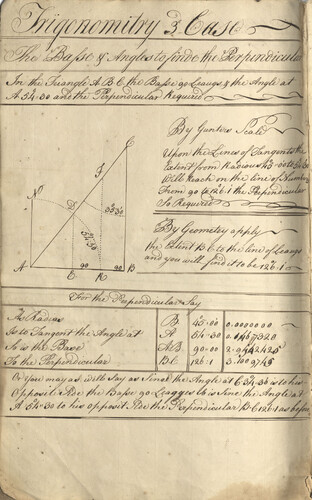 Trigonomitry 3 Case
The Base & Angles to finde the Perpendicular
In the Triangle A B C the Base 90 Leaugs & the Angle at
A 54-30 and the Perpendicular Required
By Gunters Scale
Upon the Lines of Tangents the
Extent from Radius 45-00 to 54-30
Will Reach on the line of Numbers
From 90 to 126:1 the Perpendicular
So Required
By Geometry apply
the Extent B C to the line of Leaugs
and you will find it to be 126:1
C
N
D
35-30
54-30
A
E
90
R
90
B
For the Perpendicular Say
As Radius B 45-00 0.000000
Is to Tangent the Angle at A 54-30
So is the Base AB 90-00
To the Perpendicular BC 126:1
Or you may as well Say as Sine the Angle at C 35-30 is to his
Opposite Side the Base 90 Leagges So is Sine the Angle at
A 54-30 to his opposit Side the Perpendicular BC 126:1 as before